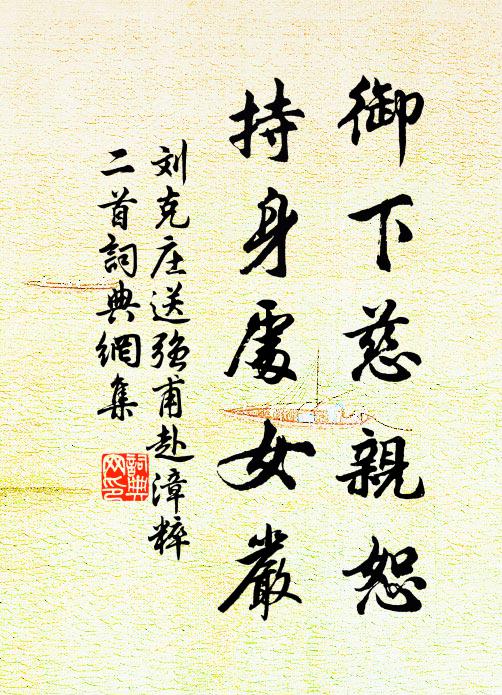 御下慈親恕
持身處女嚴
刘克庄送强甫赴漳粹
二首詞典網集
詞典
网印